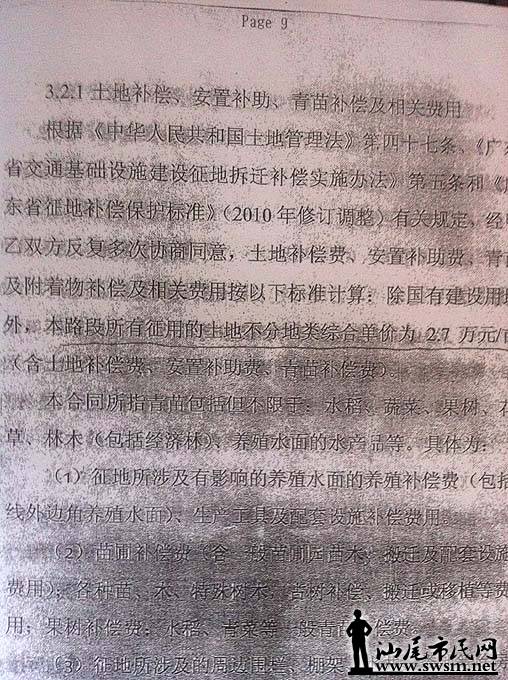 Page 9
3.2.1 土地补偿、安置补助、青苗补偿及相关费用
根据《中华人民共和国土地管理法》第四十七条、《广东
省交通基础设施建设征地拆迁补偿实施办法》第五条和《广
东省征地补偿保护标准》（2010 年修订调整）有关规定，经甲
乙双方反复多次协商同意，土地补偿费、安置补助费、青苗
及附着物补偿及相关费用按以下标准计算：除国有建设用地
外，本路段所有征用的土地不分地类综合单价为 2.7 万元/亩
（含土地补偿费、安置补助费、青苗补偿费）
本合同所指青苗包括但不限于：水稻、蔬菜、果树、花
草、林木（包括经济林）、养殖水面的水产品等。具体为：
（1）征地所涉及有影响的养殖水面的养殖补偿费（包括
线外边角养殖水面）、生产工具及配套设施补偿费用
（2）苗圃补偿费（含一般苗圃苗木、搬迁及配套设施
费用）；各种苗、木、特殊树木、古树补偿、搬迁或移植等费
用；果树补偿费；水稻、青菜等一般青苗补偿费
（3）征地所涉及的周边围栏、棚架
汕尾市民网
www.swsm.net